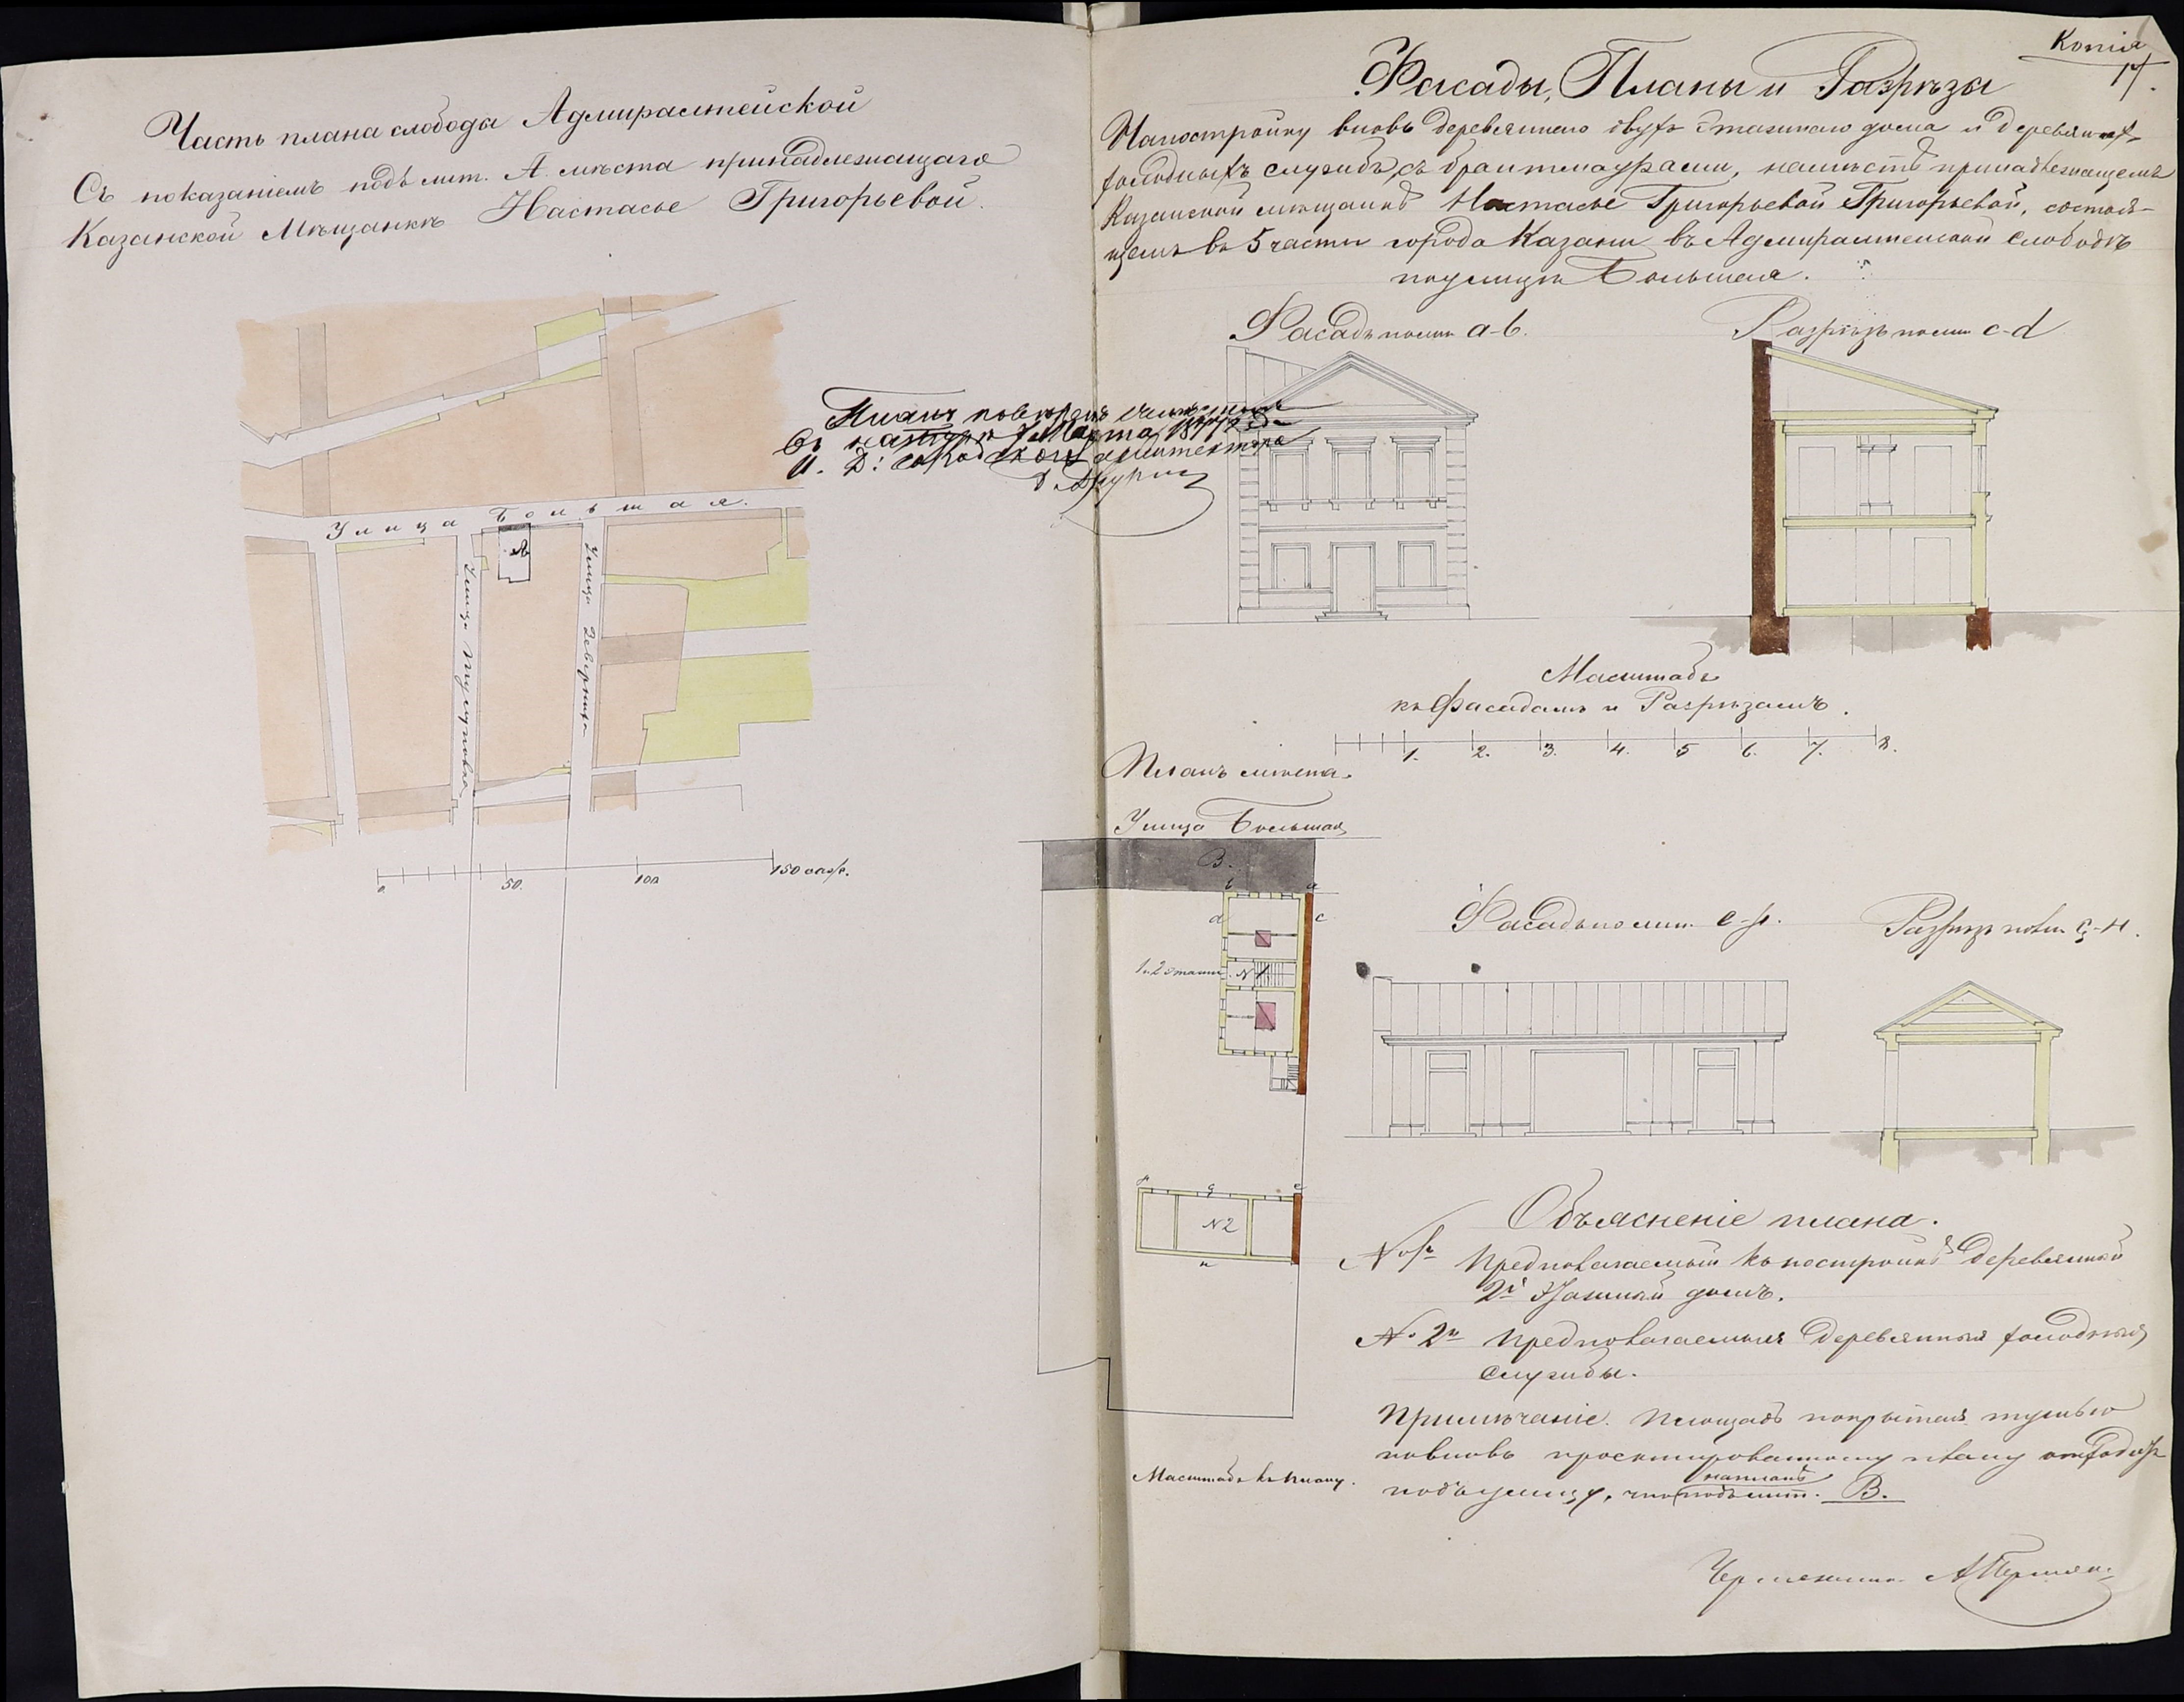 Часть плана слободы Адмиралтейской
Съ показаніемъ подъ лит. А. мѣста принадлежащаго
Казанской Мѣщанкѣ Настасье Григорьевой.
Улица Большая.
А
Улица
Улица
0. 50. 100 150 саж.
Планъ
Въ натурѣ Марта
И. Д. архитектора
Копія
17.
Фасады, Планы и Разрѣзы
На постройку вновь деревяннаго двухъ этажнаго дома и деревянныхъ
холодныхъ службъ, съ брантмаурами, на мѣстѣ принадлежащемъ
Казанской мѣщанкѣ Настасье Григорьевой Григорьевой, состоя-
щемъ въ 5 части города Казани въ Адмиралтейской слободѣ
по улицѣ Большая.
Фасадъ по лин a-b.
Разрѣзъ по лин c-d
Масштабъ
къ Фасадамъ и Разрѣзамъ.
1. 2. 3. 4. 5 6. 7. 8.
Планъ мѣста.
Улица Большая
В.
b a
d c
1 и 2 этажи N 1
Фасадъ по лин. e-f.
Разрѣзъ по лин g-н.
f g e
N2
н
Объясненіе плана.
N 1й Предполагаемый къ постройкѣ деревянный
2х этажный домъ.
N. 2й Предполагаемыя деревянныя холодныя
службы.
Примѣчаніе. Площадь покрытая тушью
по вновь проэктированному плану отходитъ
подъ улицу, что на планѣ подъ лит. В.
Масштабъ къ плану.